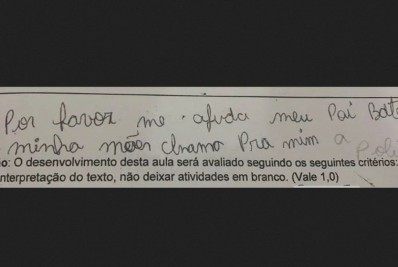 Por favor me ajuda meu Pai Bate
minha mãe chama Pra mim a
ão: O desenvolvimento desta aula será avaliado seguindo os seguintes critérios:
nterpretação do texto, não deixar atividades em branco. (Vale 1,0)